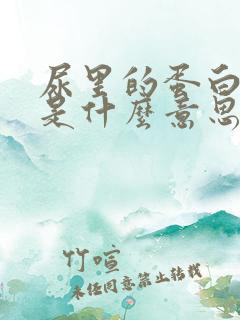 尿里的蛋白
是什麼意思
竹喧
未经同意禁止转载